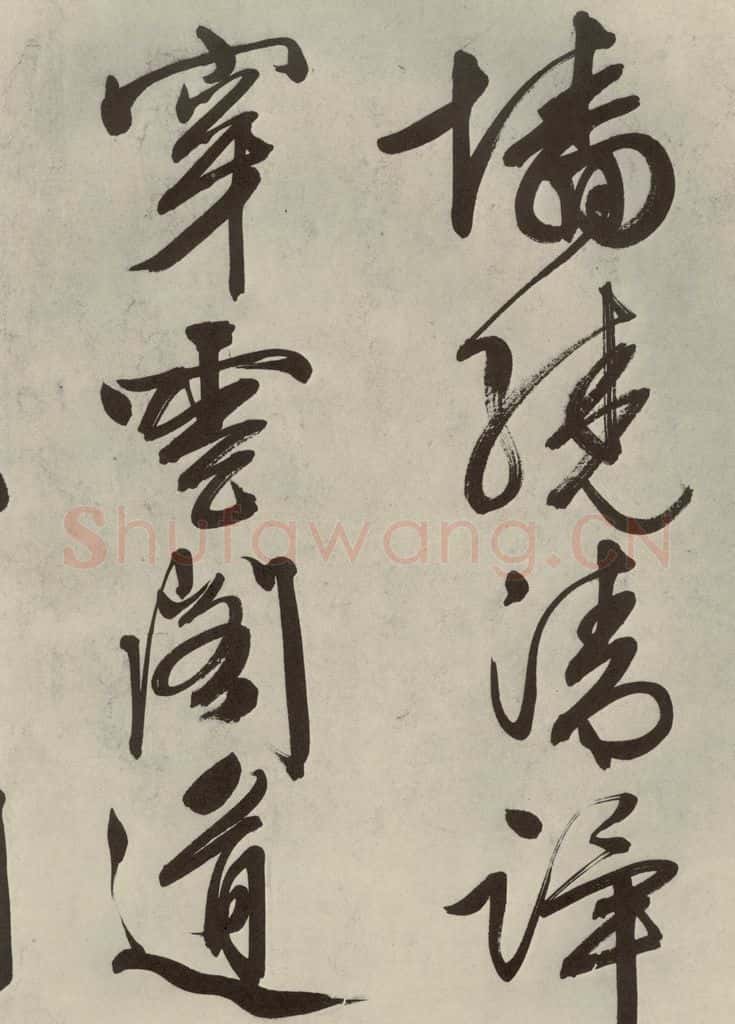 墻繞清
穿雲閣道
Shufawang.CN